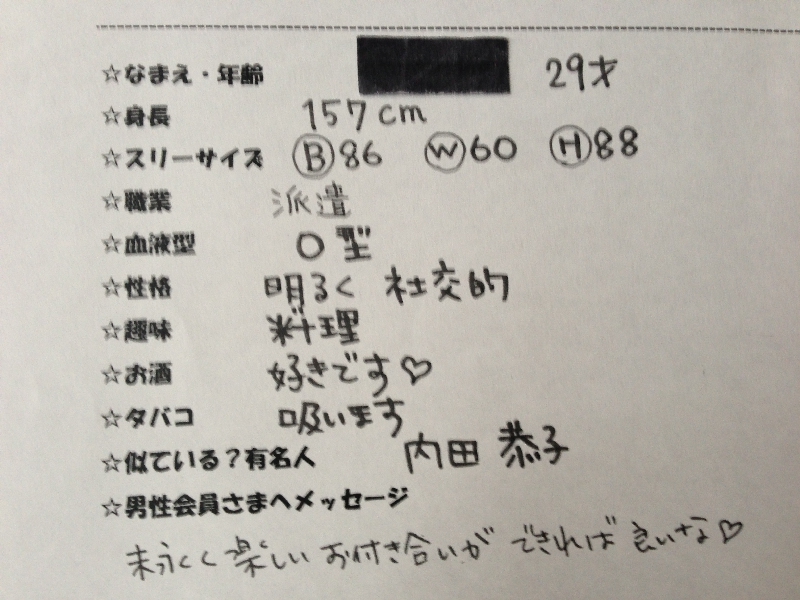 ☆なまえ・年齢 29才
☆身長 157cm
☆スリーサイズ Ⓑ86 Ⓦ60 Ⓗ88
☆職業 派遣
☆血液型 O型
☆性格 明るく 社交的
☆趣味 料理
☆お酒 好きです♡
☆タバコ 吸います
☆似ている?有名人 内田 恭子
☆男性会員さまへメッセージ
末永くく楽しいお付き合いができれば良いな♡